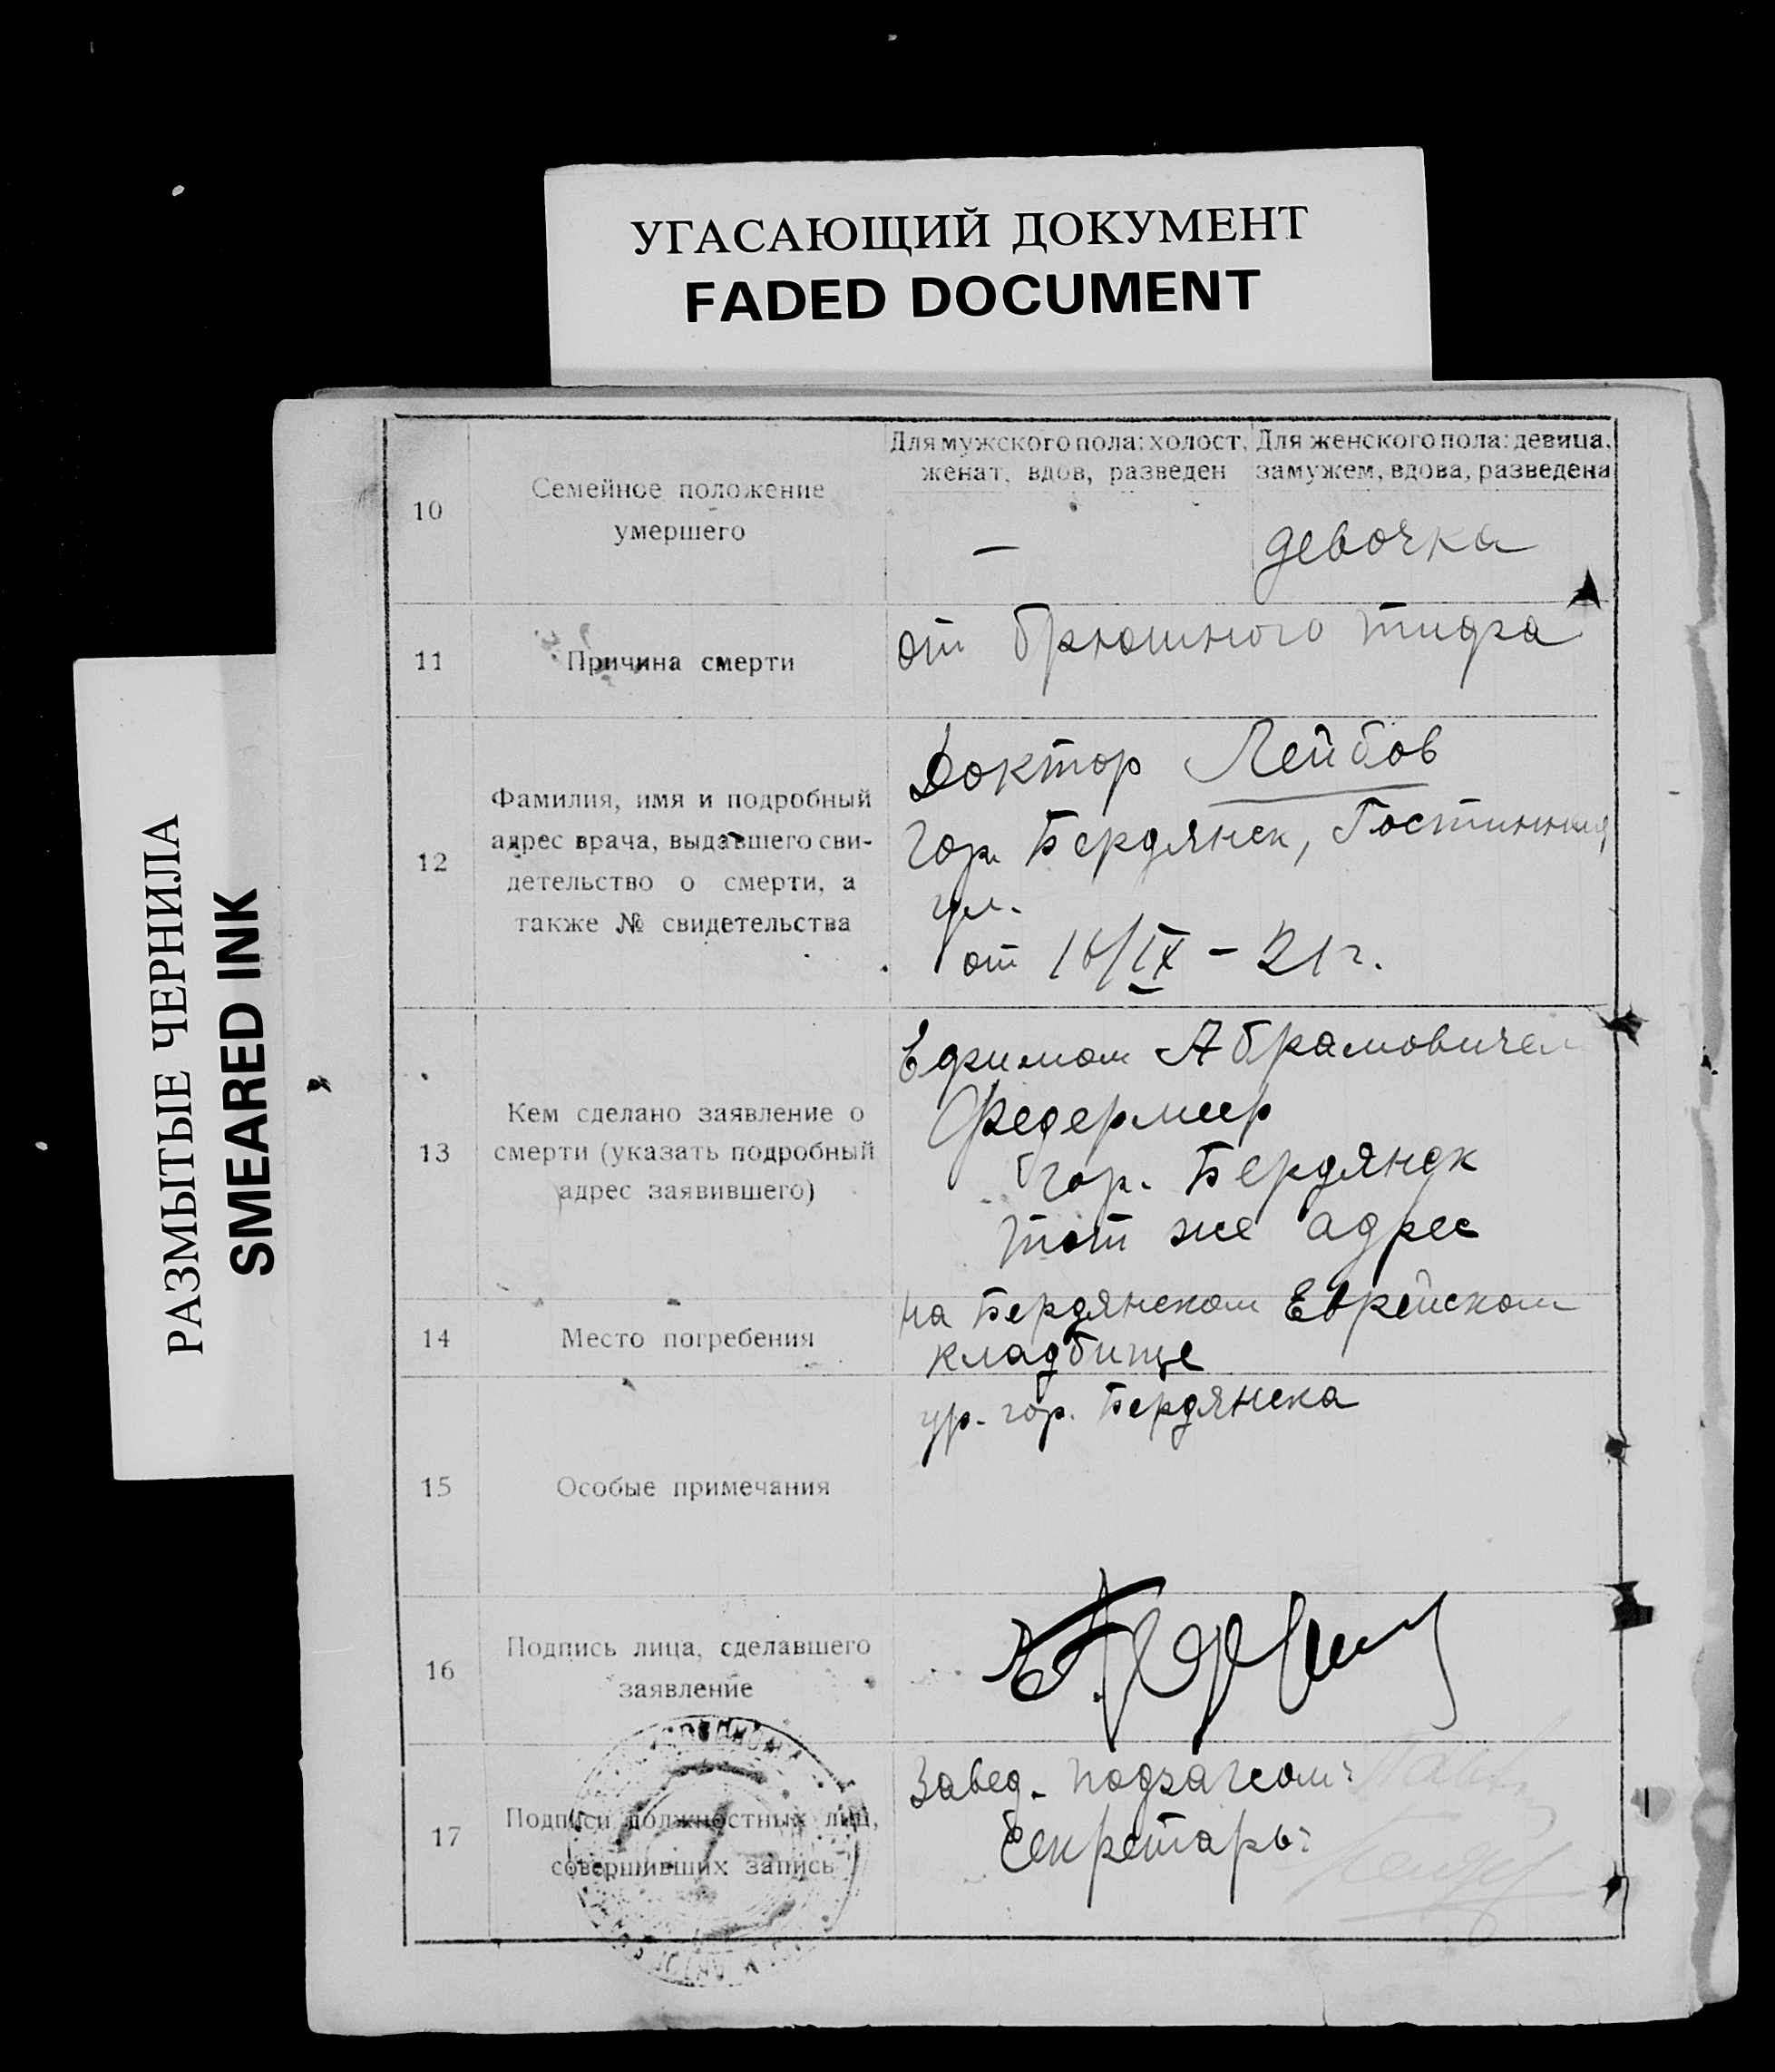 УГАСАЮЩИЙ ДОКУМЕНТ
FADED DOCUMENT
РАЗМЫТЫЕ ЧЕРНИЛА
SMEARED INK
10
Семейное положение
умершего
Для мужского пола: холост,
женат, вдов, разведен
—
Для женского пола: девица,
замужем, вдова, разведена
девочка
11
Причина смерти
от брюшного тифа
12
Фамилия, имя и подробный
адрес врача, выдавшего сви-
детельство о смерти, а
также № свидетельства
Доктор Лейбов
гор. Бердянск, Гостинная
ул.
от 16/IX – 21 г.
13
Кем сделано заявление о
смерти (указать подробный
адрес заявившего)
Ефимом Абрамовичем
Федермеер
гор. Бердянск
тот же адрес
14
Место погребения
на Бердянском Еврейском
кладбище
15
Особые примечания
ур. гор. Бердянска
16
Подпись лица, сделавшего
заявление
17
Подписи должностных лиц,
совершивших запись
Завед. подзагсом:
Секретарь: